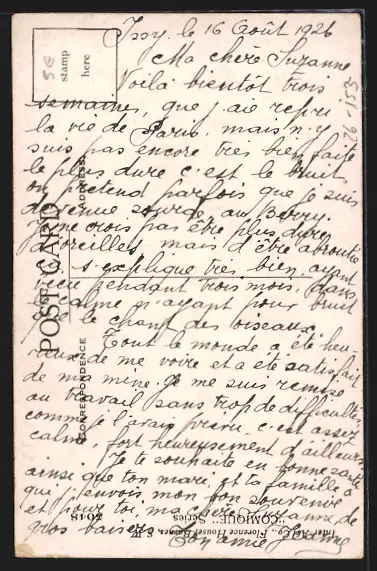 Issy, le 16 Août 1926
Ma chère Suzanne
Voilà bientôt trois
semaines, que j'aie repris
la vie de Paris, mais n'y
suis pas encore très bien faite
le plus dure c'est le bruit,
on prétend parfois que je suis
devenue sourde, au Berry.
Je ne crois pas être plus dure
d'oreilles, mais d'être abroutie
s'explique très bien, ayant
vécu pendant trois mois, dans
le calme n'ayant pour bruit
que le chant des oiseaux.
Tout le monde a été heu-
reux de me voire et a été satisfait
de ma mine. Je me suis remise
au travail sans trop de difficultés,
comme je l'avais prévu c'est assez
calme, fort heureusement d'ailleurs
Je te souhaite en bonne santé
ainsi que ton mari, et ta famille à
qui j'envois mon bon souvenir
et pour toi, ma chère Suzanne, de
gros baisers Ton amie
stamp
here
POST CARD
ADDRESS
CORRESPONDENCE
Inter-Art Co., Florence House, Barnes, S.W.
"COMIQUE" Series